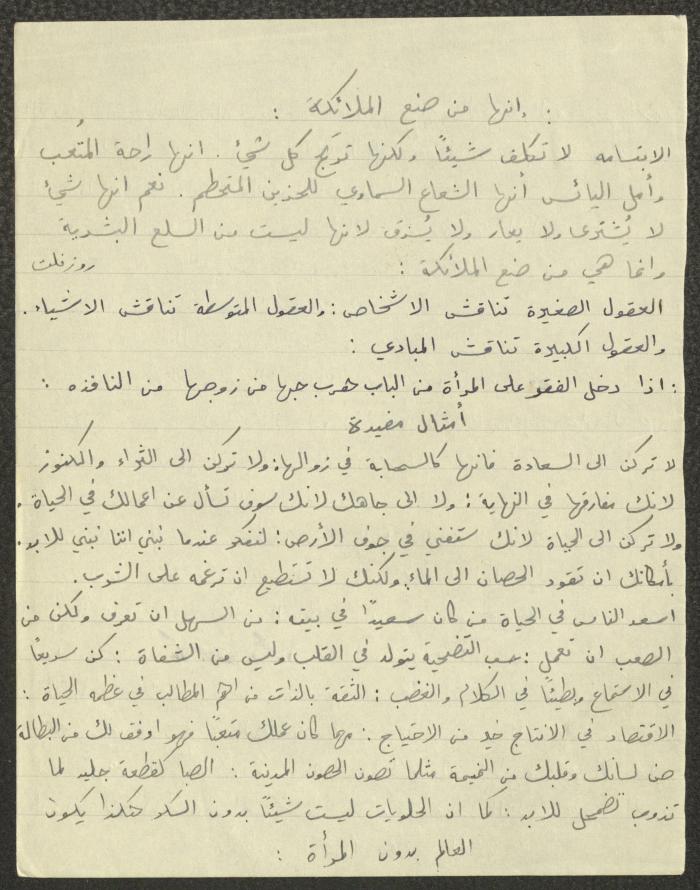 : إنها من صنع الملائكة :
الابتسامه لا تكلف شيئاً ولكنها توّج كل شيء . انها راحة المتُعب
وأمل اليائس أنها الشعاع السماوي للحزين المتحطم . نعم انها شيء
لا يُشترى ولا يعار ولا يُسرق لانها ليست من السلع البشرية
وانما هي من صنع الملائكة : روزفلت
العقول الصغيرة تناقش الاشخاص : والعقول المتوسطة تناقش الاشياء .
والعقول الكبيرة تناقش المبادي :
: اذا دخل الفقر على المرأة من الباب هرب حبها من زوجها من النافذه :
أمثال مفيدة
لا تركن الى السعادة فانها كالسحابة في زوالها : ولا تركن الى الثراء والكنوز
لانك مفارقها في النهاية : ولا الى جاهك لانك سوف تسأل عن اعمالك في الحياة .
ولا تركن الى الحياة لانك ستفنى في جوف الأرض : لنفكر عندما نبني اننا نبني للابد .
بأمكانك ان تقود الحصان الى الماء ولكنك لا تستطيع ان ترغمه على الشرب .
اسعد الناس في الحياة من كان سعيداً في بيته : من السهل ان تعرف ولكن من
الصعب ان تعمل : حب التضحية يتولد في القلب وليس من الشفاة : كن سريعاً
في الاستماع وبطئاً في الكلام والغضب : الثقة بالذات من اهم المطالب في عظمه الحياة :
الاقتصاد في الانتاج خير من الاحتياج : مهما كان عملك متعباً فهو اوفق لك من البطالة
صن لسانك وقلبك من النميمة مثلما تصون الحصون المدينة : الصبا كقطعة جليد لما
تذوب تضمحل للابد : كما ان الحلويات ليست شيئاً بدون السكر هكذا يكون
العالم بدون المرأة :